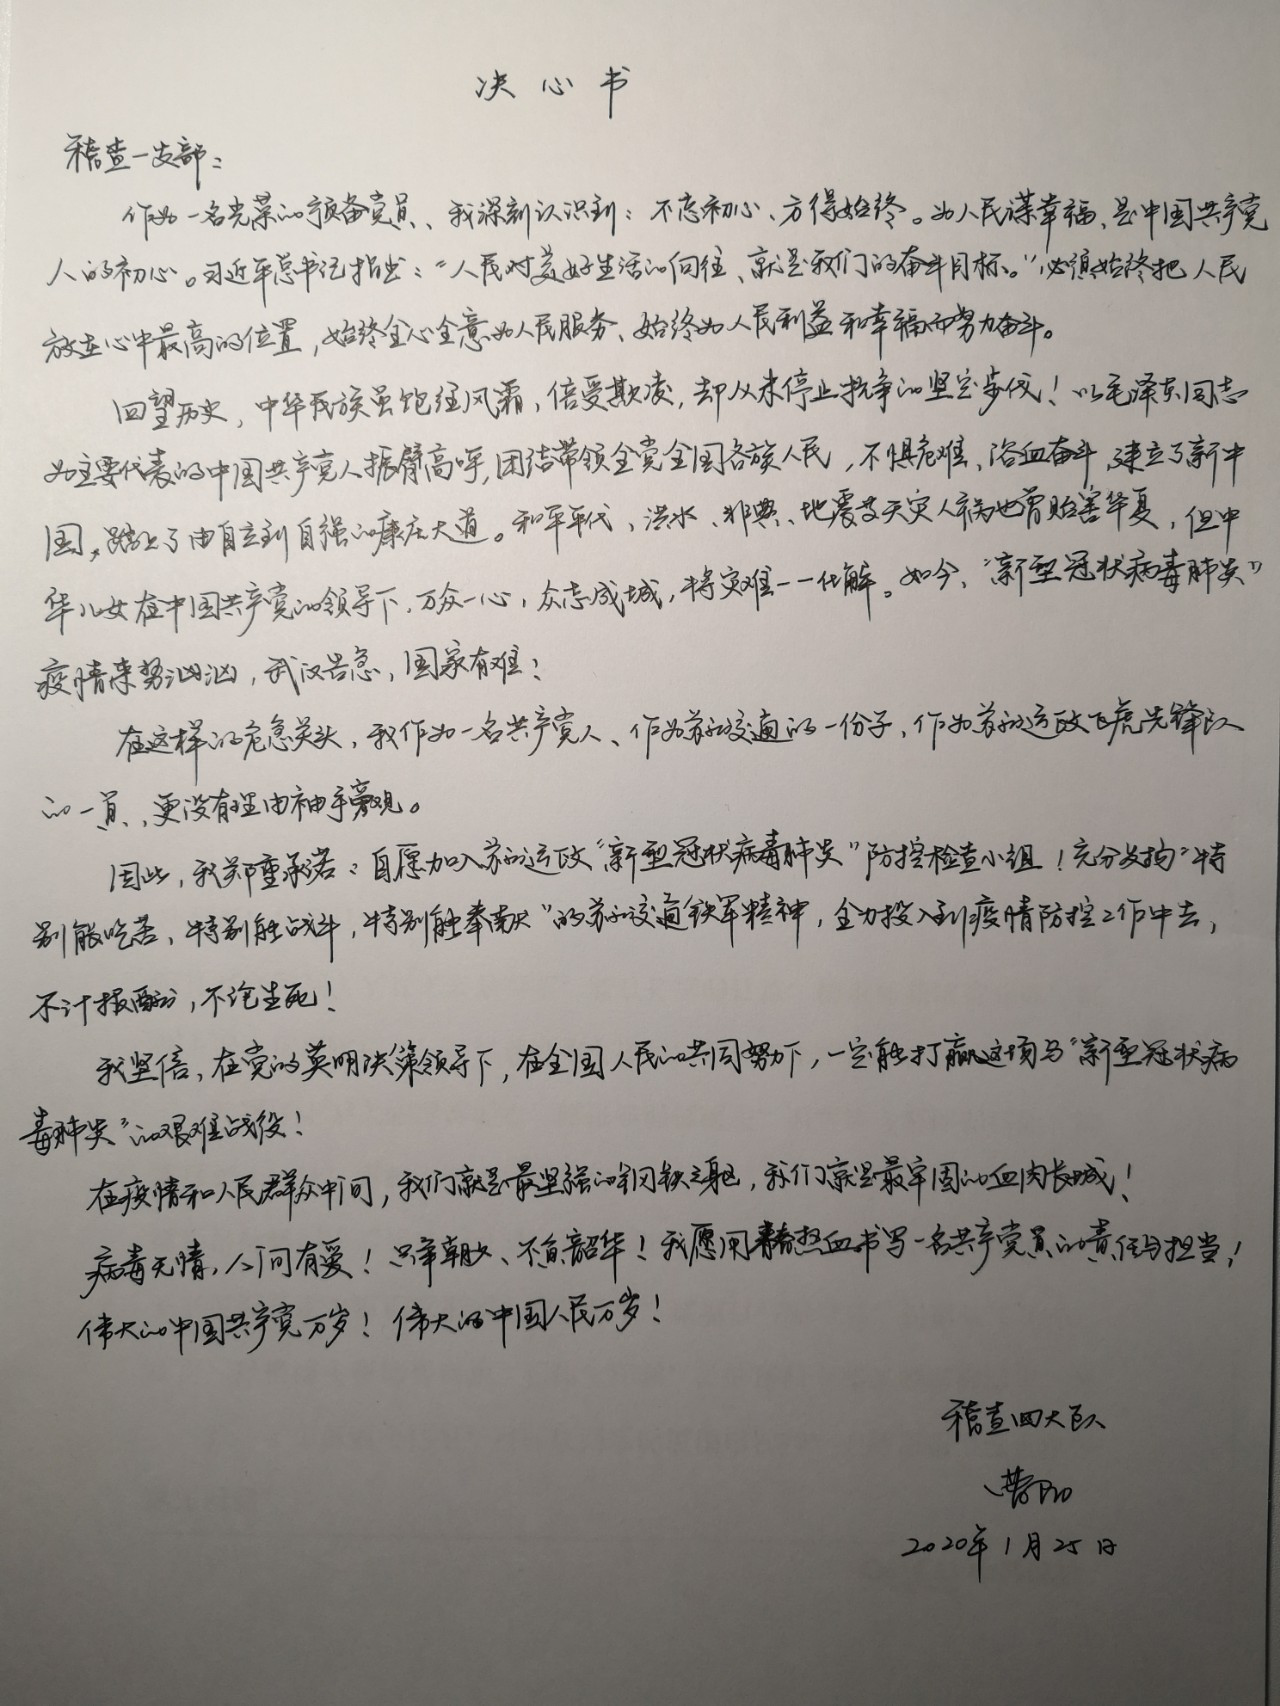 决心书
稽查一支部：
作为一名光荣的预备党员、我深刻认识到：不忘初心、方得始终。为人民谋幸福、是中国共产党
人的初心。习近平总书记指出：“人民对美好生活的向往、就是我们的奋斗目标。”必须始终把人民
放在心中最高的位置，始终全心全意为人民服务、始终为人民利益和幸福而努力奋斗。
回望历史，中华民族虽饱经风霜，倍受欺凌，却从未停止抗争的坚定步伐！以毛泽东同志
为主要代表的中国共产党人振臂高呼，团结带领全党全国各族人民，不惧危难、浴血奋斗，建立了新中
国，踏上了由自立到自强的康庄大道。和平年代，洪水、非典、地震等天灾人祸也曾贻害华夏，但中
华儿女在中国共产党的领导下，万众一心，众志成城，将灾难一一化解。如今，“新型冠状病毒肺炎”
疫情来势汹汹，武汉告急，国家有难！
在这样的危急关头，我作为一名共产党人、作为苏州交通的一份子，作为苏州运政飞虎先锋队
的一员、更没有理由袖手旁观。
因此，我郑重承诺：自愿加入苏州运政“新型冠状病毒肺炎”防控检查小组！充分发扬“特
别能吃苦、特别能战斗，特别能奉献”的苏州交通铁军精神，全力投入到疫情防控工作中去，
不计报酬，不论生死！
我坚信，在党的英明决策领导下，在全国人民的共同努力下，一定能打赢这场与“新型冠状病
毒肺炎”的艰难战役！
在疫情和人民群众中间，我们就是最坚强的钢铁之躯，我们就是最牢固的血肉长城！
病毒无情，人间有爱！只争朝夕、不负韶华！我愿用青春热血书写一名共产党员的责任与担当！
伟大的中国共产党万岁！伟大的中国人民万岁！
稽查四大队
2020年1月25日